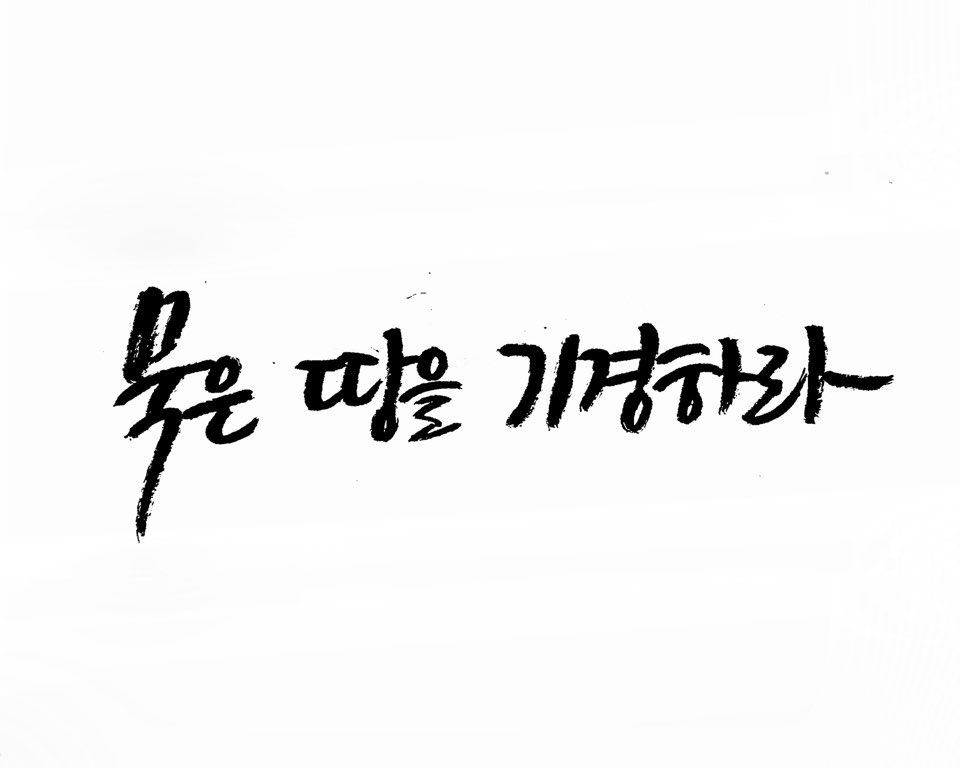 묵은 땅을 기경하라